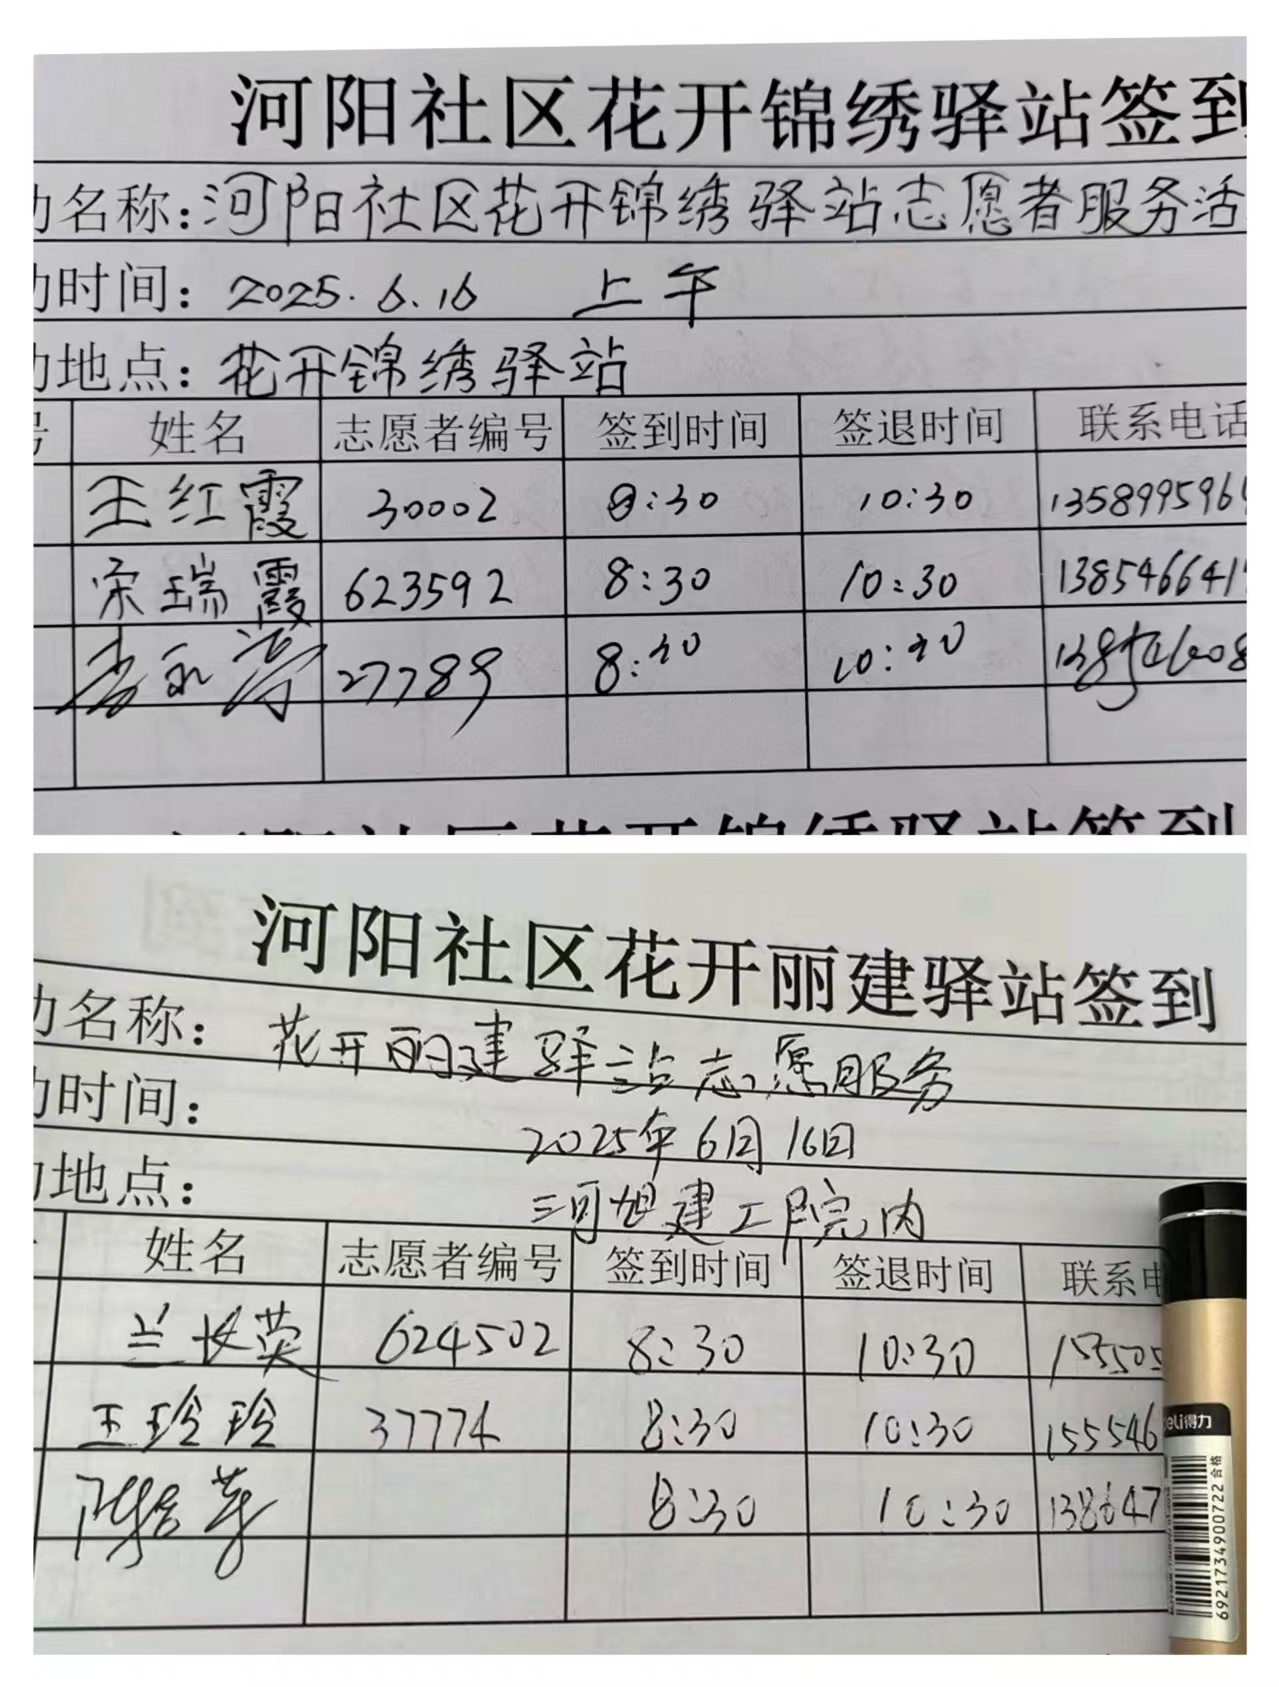 河阳社区花开锦绣驿站签到
名称:河阳社区花开锦绣驿站志愿者服务活
时间: 2025.6.16 上午
地点: 花开锦绣驿站
号 姓名 志愿者编号 签到时间 签退时间 联系电话
王红霞 30002 8:30 10:30 135899596
宋瑞霞 623592 8:30 10:30 138546641
27789 8:30 10:30
河阳社区花开锦绣驿站签到
河阳社区花开丽建驿站签到
名称: 花开丽建驿站志愿服务
时间: 2025年6月16日
地点: 三河旭建工院内
姓名 志愿者编号 签到时间 签退时间 联系电
兰长英 624502 8:30 10:30 155505
王玲玲 37774 8:30 10:30 155546
8:30 10:30 138647
deli得力
6921734900722 合格